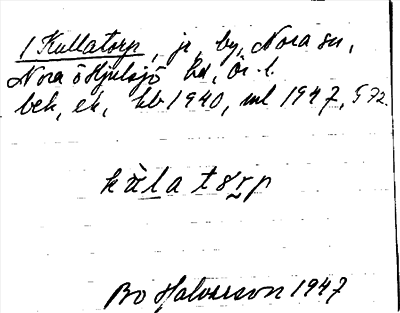 1 Kullatorp, jr, by, Nora sn,
Nora o Hjulsjö hd, Ör. l.
bek, ek, kb 1940, ml 1947, § 72.
Bo Halvarson 1947